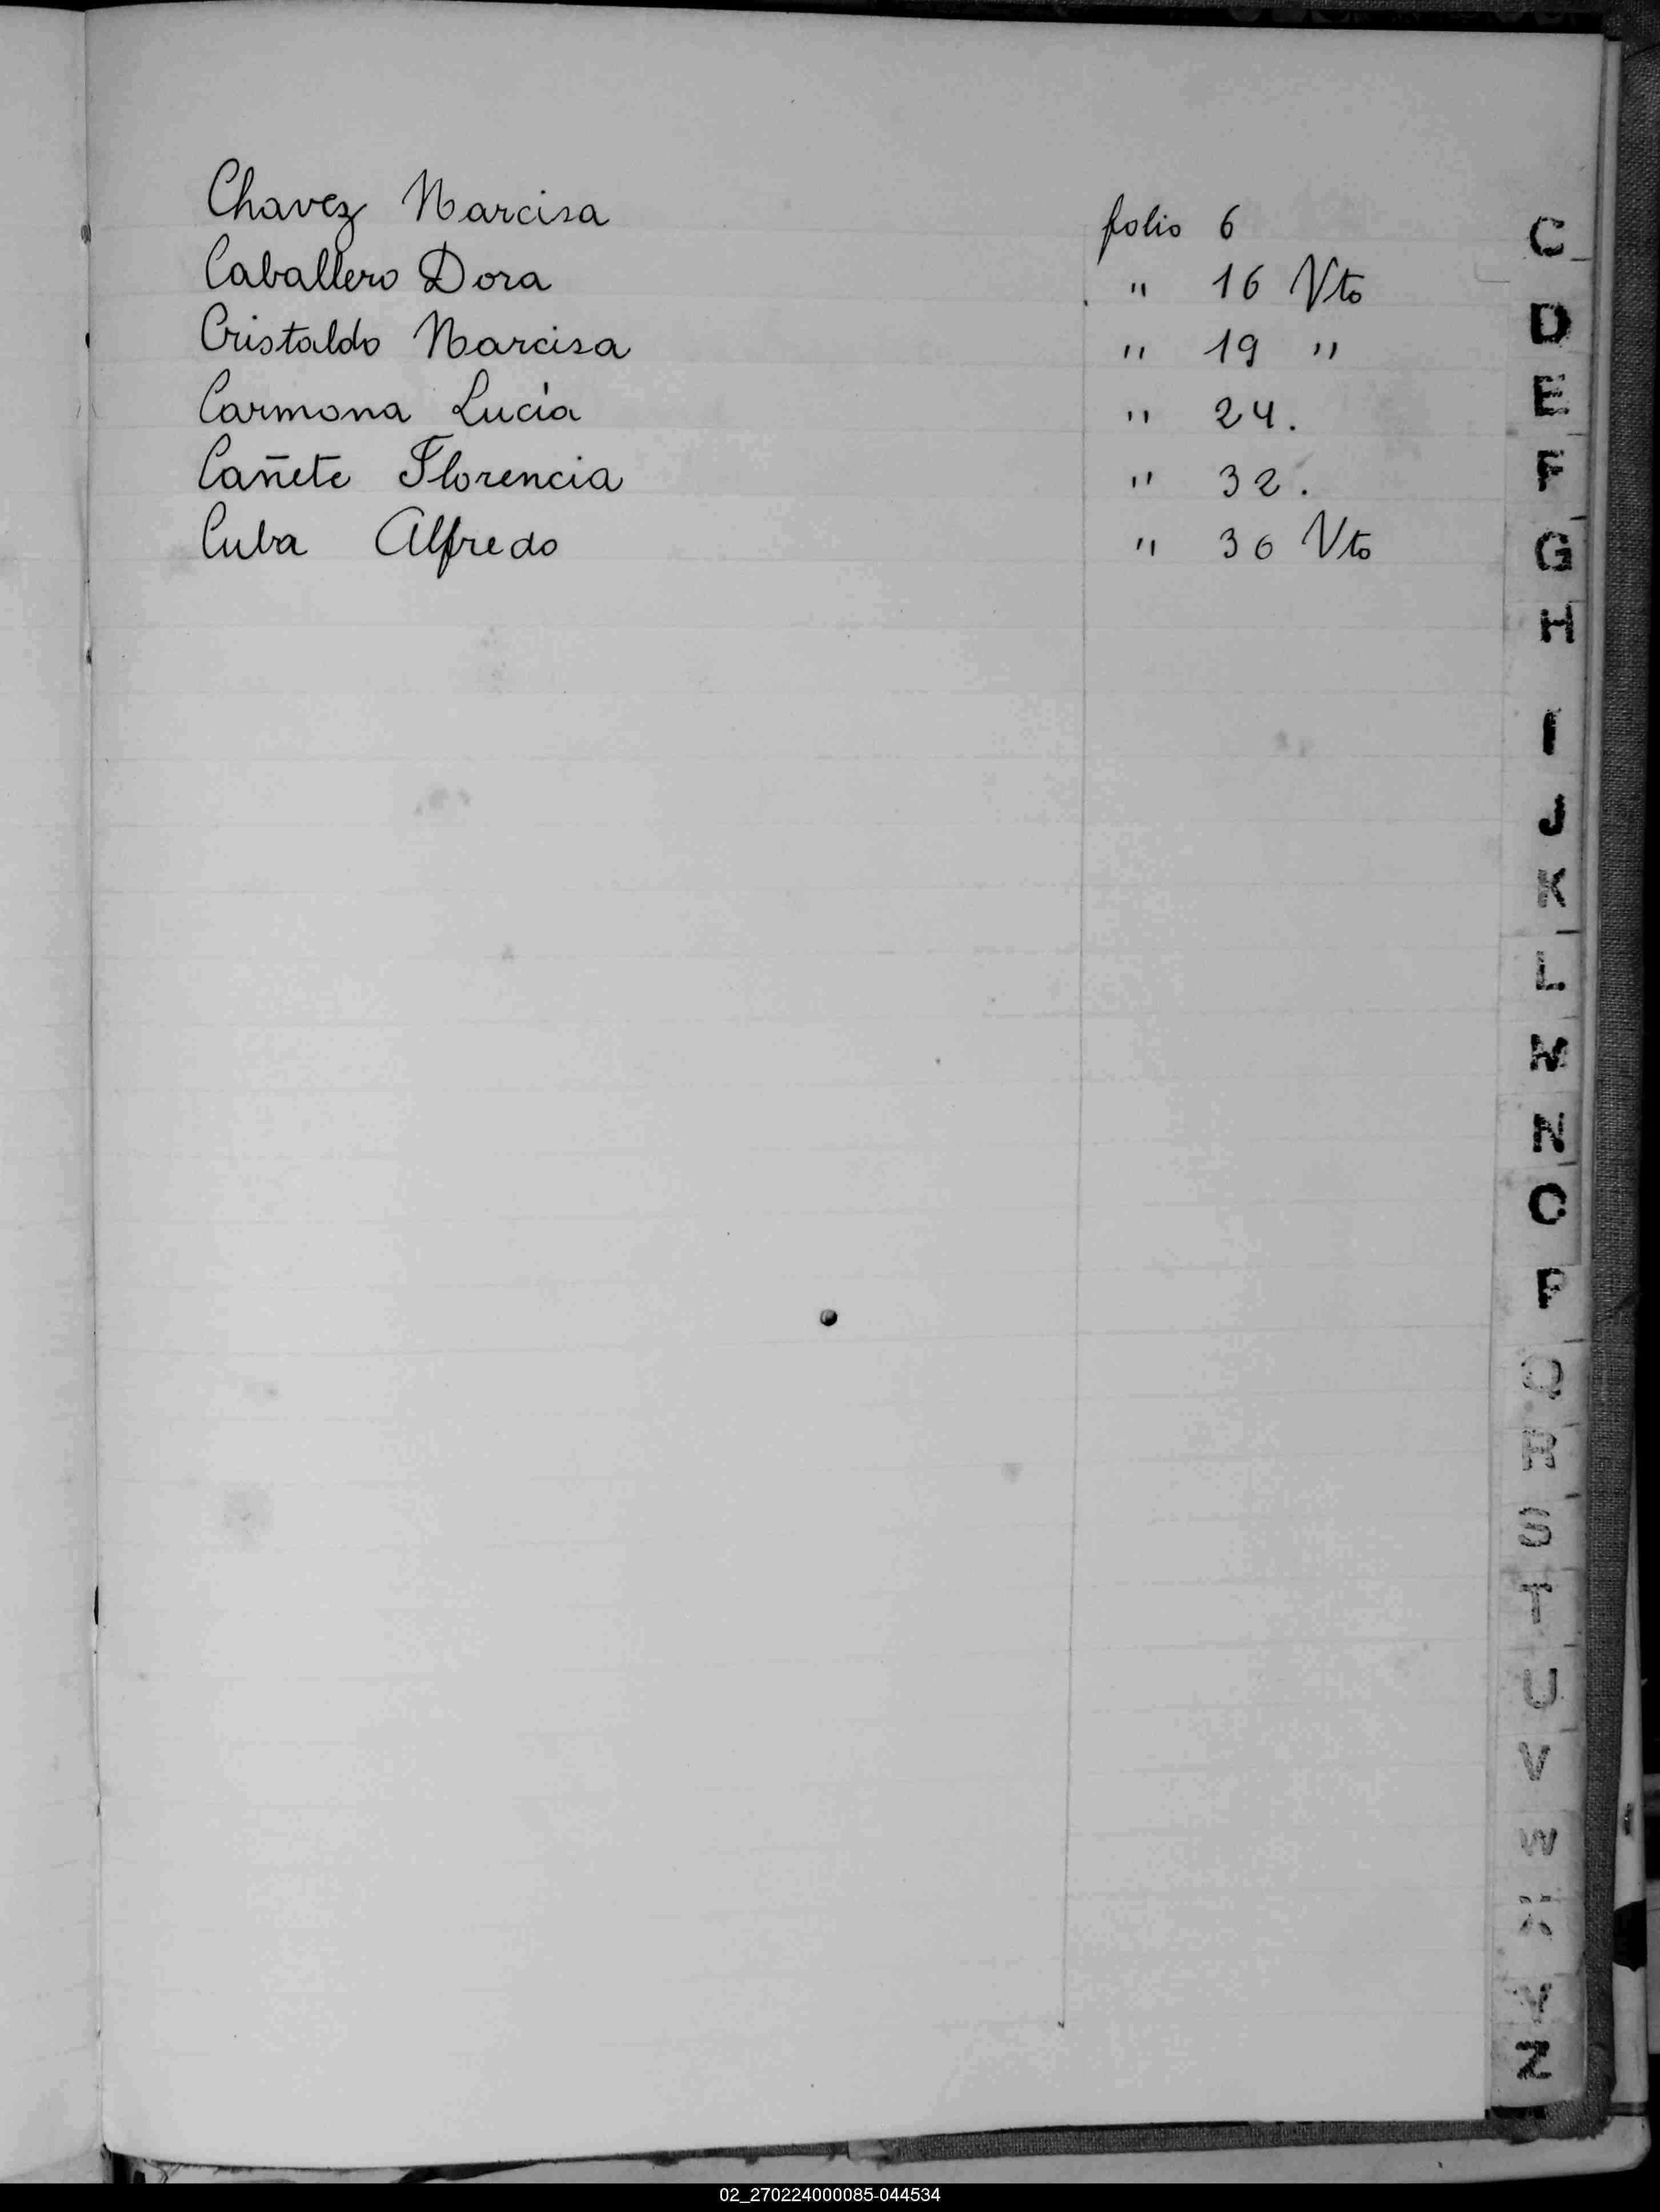 Chavez Narcisa folio 6
Caballero Dora " 16 Vto
Cristaldo Narcisa " 19 "
Carmona Lucía " 24.
Cañete Florencia " 32.
Cuba Alfredo " 36 Vto
C
D
E
F
G
H
I
J
K
L
M
N
O
P
Q
R
S
T
U
V
W
X
Y
Z
02_270224000085-044534